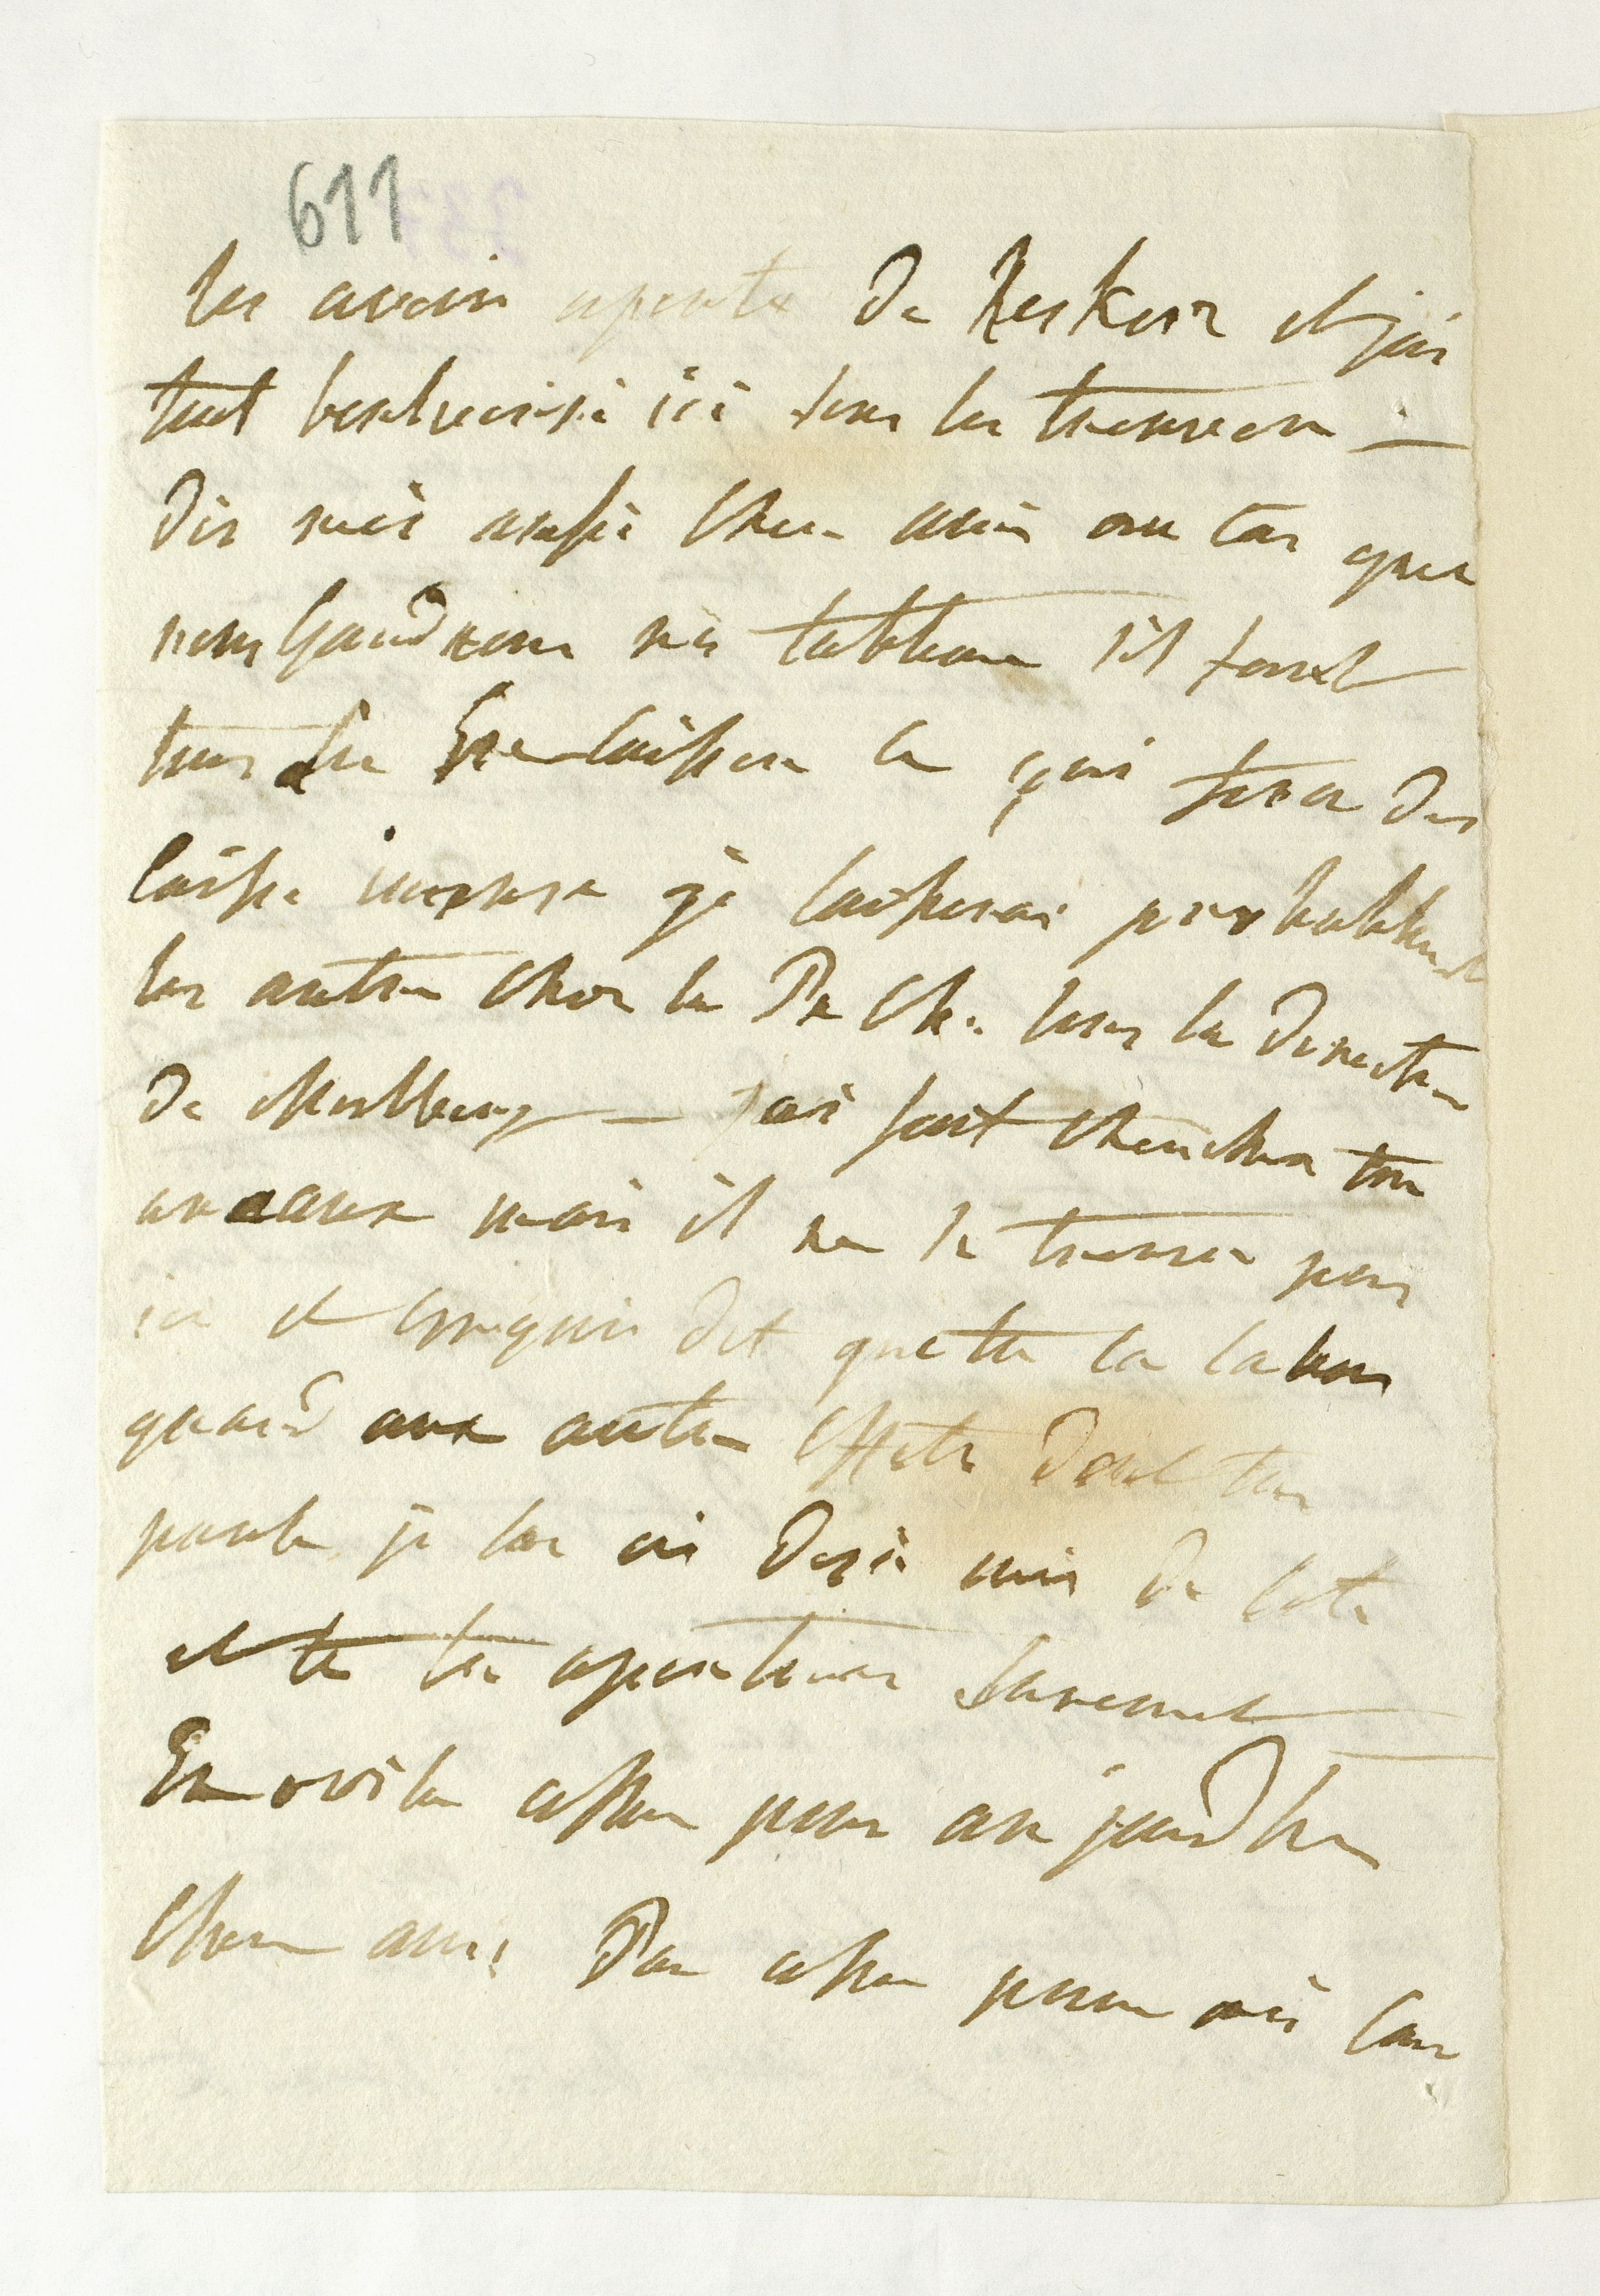 611
les avoir aporté de Keskerz et jai
tout boulversé ici sans les trouver —
Dis moi aussi cher ami au cas que
nous Gardions nos tableau s'il faut
tous les laisser ce qui fera des
caisse imense je laisserai probablement
les autre chez le Pr Ch: sous la direction
de — jai fait chercher ton
mais il ne se trouve pas
ici et dit que tu la la bas
quand aux autre Effets dont tu
parle je les ai deja mis de coté
et te les aporterai surement
En voila assez pour aujourdhui
Cher ami Pas assez pour moi car